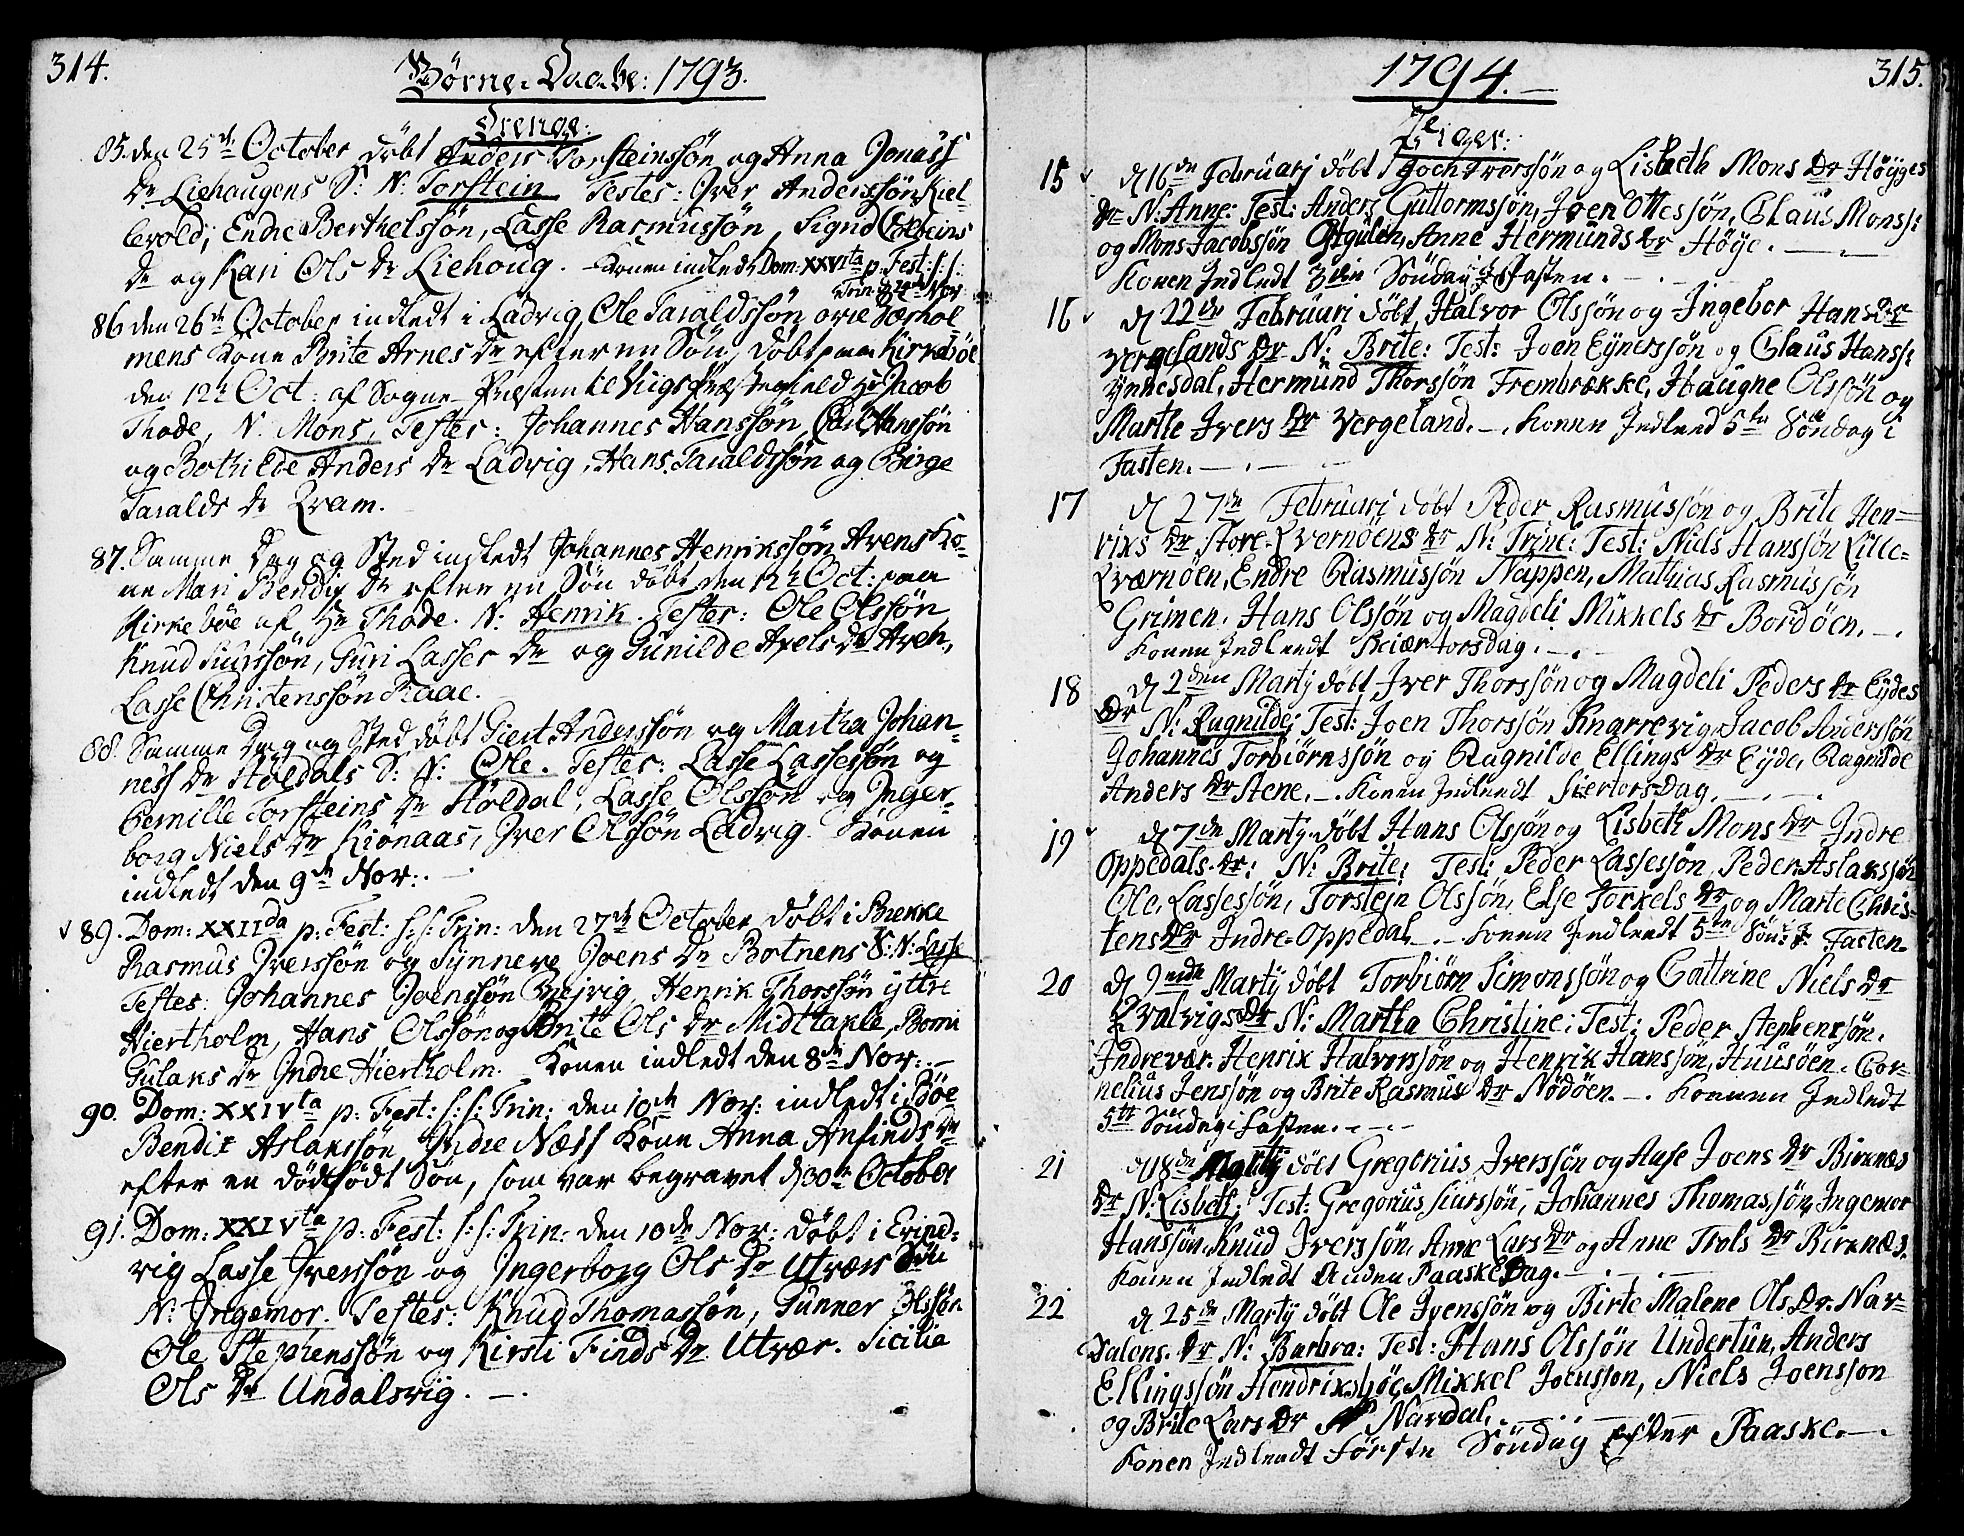 314.
Børne-Daabe: 1793.
Drenge:
85. den 25de October døbt Anders Torsteinssøn og Anna Jonass
Dr Liehaugens S: N: Torstein Testes: Iver Anderssøn Kiel-
levold, Endre Berthelssøn, Lasse Rasmussøn, Sigrid Colbeins
Dr og Kari Ols Dr Liehoug. Konen indledt Dom: XXVIta p: Fest: s: s:
Trin: d 24de Nov:
86 den 26de October indledt i Ladvig, Ole Taraldssøn
mens Kone Brite Arnes Dr efter en Søn, døbt paa Kirkebøe
den 12te Oct: af Sogne-Præsten til Præstegield Hr Jacob
Thode, N: Mons, Testes: Johannes Hanssøn, Hanssøn
og Bothilde Anders Dr Ladvig, Hans Taraldssøn og Birge
Taralds Dr Qvam.
87. Samme Dag og Sted indledt Johannes Henrikssøn Avens Ko-
ne Mari Bendix Dr efter en Søn døbt den 12te Oct: paa
Kirkebøe af Hr Thode. N: Henrik. Testes: Ole Olssøn
Knud Siurssøn, Guri Lasses Dr og Gunilde Axels Dr Aven,
Lasse Christenssøn Raae.
88. Samme Dag og Sted døbt Giert Anderssøn og Martha Johan-
ness Dr Høldals S: N: Ole. Testes: Lasse Lassessøn og
Pernille Torsteins Dr Høldal, Lasse Olssøn og Inger-
borg Niels Dr Kionaas, Iver Olssøn Ladvig. Konen
indledt den 9de Nov:
89. Dom: XXIIda p: Fest: s: s: Trin: den 27de October døbt i Brekke
Rasmus Iverssøn og Synneve Joens Dr Botnens S: N: Lasse
Testes: Johannes Joenssøn Henrik Thorssøn yttre
Hiertholm, Hans Olssøn og Brite Ols Dr Midttakle, Bomi
Gulaks Dr Indre Hiertholm. Konen indledt den 8de Nov:
90. Dom: XXIVta p: Fest: s: s: Trin: den 10de Nov: indledt i Bøe
Bendix Aslakssøn Indre Næss Kone Anna Anfinds Dr
efter en dødfødt Søn, som var begravet d 30te October
91. Dom: XXIVta p: Fest: s: s: Trin: den 10de Nov: døbt i Evind-
vig Lasse Iverssøn og Ingerborg Ols Dr Utværs Søn
N: Ingemor. Testes: Knud Thomassøn, Gunner Olssøn
Ole Stephenssøn og Kirsti Finds Dr Utvær. Sicilia
Ols Dr Undalsvig.
1794.
315.
Piger:
15 d 16de Februarj døbt Iverssøn og Lisbeth Mons Dr Høyges
Dr N: Anne: Test: Anders Guttormssøn, Joen Ottessøn, Claus Monss:
og Mons Jacobssøn Anne Hermunds Dr Høye.
Konen Indledt 3die Søndag i Fasten.
16 d 22de Februari døbt Halvor Olssøn og Ingebor Hans Dr
Vergelands Dr N: Brite: Test: Joen Eynerssøn og Claus Hanss:
Ynnesdal, Hermund Thorssøn Frembrække, Haugne Olssøn og
Marthe Ivers Dr Vergeland. Konen Indleed 5te Søndag i
Fasten.
17 d 27de Februari døbt Peder Rasmussøn og Brite Hen-
riks Dr Store-Qvernøens Dr N: Trine: Test: Niels Hanssøn Lille-
Qværnøen, Endre Rasmussøn Nappen, Mathias Rasmussøn
Grimen, Hans Olssøn og Magdeli Mikkels Dr Bordøen.
Konen Indleedt Skiærtorsdag.
18 d 2den Martj døbt Iver Thorssøn og Magdeli Peders Dr Eydes
Dr N: Ragnilde: Test: Joen Thorssøn Knarrevig, Jacob Anderssøn
Johannes Torbiørnssøn og Ragnilde Ellings Dr Eyde, Ragnilde
Anders Dr Stene. Konen Indleedt Skiertorsdag.
19 d 7de Martj døbt Hans Olssøn og Lisbeth Mons Dr Indre
Oppedals Dr: N: Brite: Test: Peder Lassessøn, Peder Aslakssøn
Ole Lassessøn, Torstein Olssøn, Else Torkels Dr og Marte Chris-
tens Dr Indre-Oppedal. Konen Indleedt 5te Sønd: i Fasten.
20 d 9nde Martj døbt Torbiørn Simonssøn og Cattrine Niels Dr
Qvalvigs Dr N: Martha Christine: Test: Peder Stephenssøn.
Indrevær. Henrik Halvorssøn og Henrik Hanssøn, Huusøen. Cor-
nelius Jenssøn og Brite Rasmus Dr Nødøen. Konnen Indledt
5te Søndag i Fasten.
21 d 18de Martj døbt Gregorius Iverssøn og Aase Joens Dr Birknæs
Dr N: Lisbeth: Test: Gregorius Siurssøn, Johannes Thomassøn, Ingemor
Hanssøn, Knud Iverssøn, Anne Lars Dr og Anne Trols Dr Birknæs.
Konen Indledt Anden Paaske Dag.
22 d 25de Martj døbt Ole Ivenssøn og Birte Malene Ols Dr. Nar-
Dalens Dr N: Barbra: Test: Hans Olssøn Undertun, Anders
Ellingssøn Hendriksbøe, Mikkel Joenssøn, Niels Joenssøn
og Brite Lars Dr Nardal.
Konen Indleedt første Søndag efter Paaske.